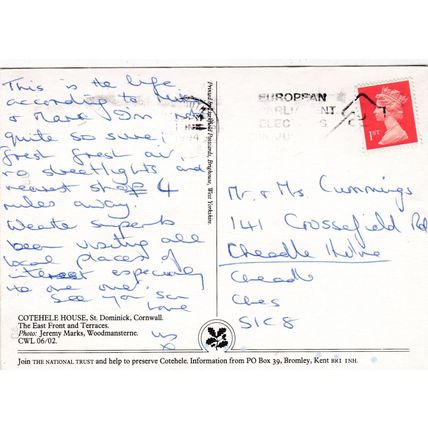 This is the life
according to
+ Mark I'm not
quite so sure!
fresh fresh air
no streetlights and
nearest shop 4
miles away.
Weather superb
been visiting all
local places of
interest especially
to
See you soon
love
us
X
COTEHELE HOUSE, St. Dominick, Cornwall.
The East Front and Terraces.
Photo: Jeremy Marks, Woodmansterne.
CWL 06/02.
Printed by Postcards, Brighouse, West Yorkshire.
EUROPEAN
PARLIAMENT
ELECTIONS
1ST
Mr. & Mrs Cummings
141 Crossefield Rd
Cheadle Hulme
Cheadle
Ches
SK8
Join THE NATIONAL TRUST and help to preserve Cotehele. Information from PO Box 39, Bromley, Kent BR1 1NH.